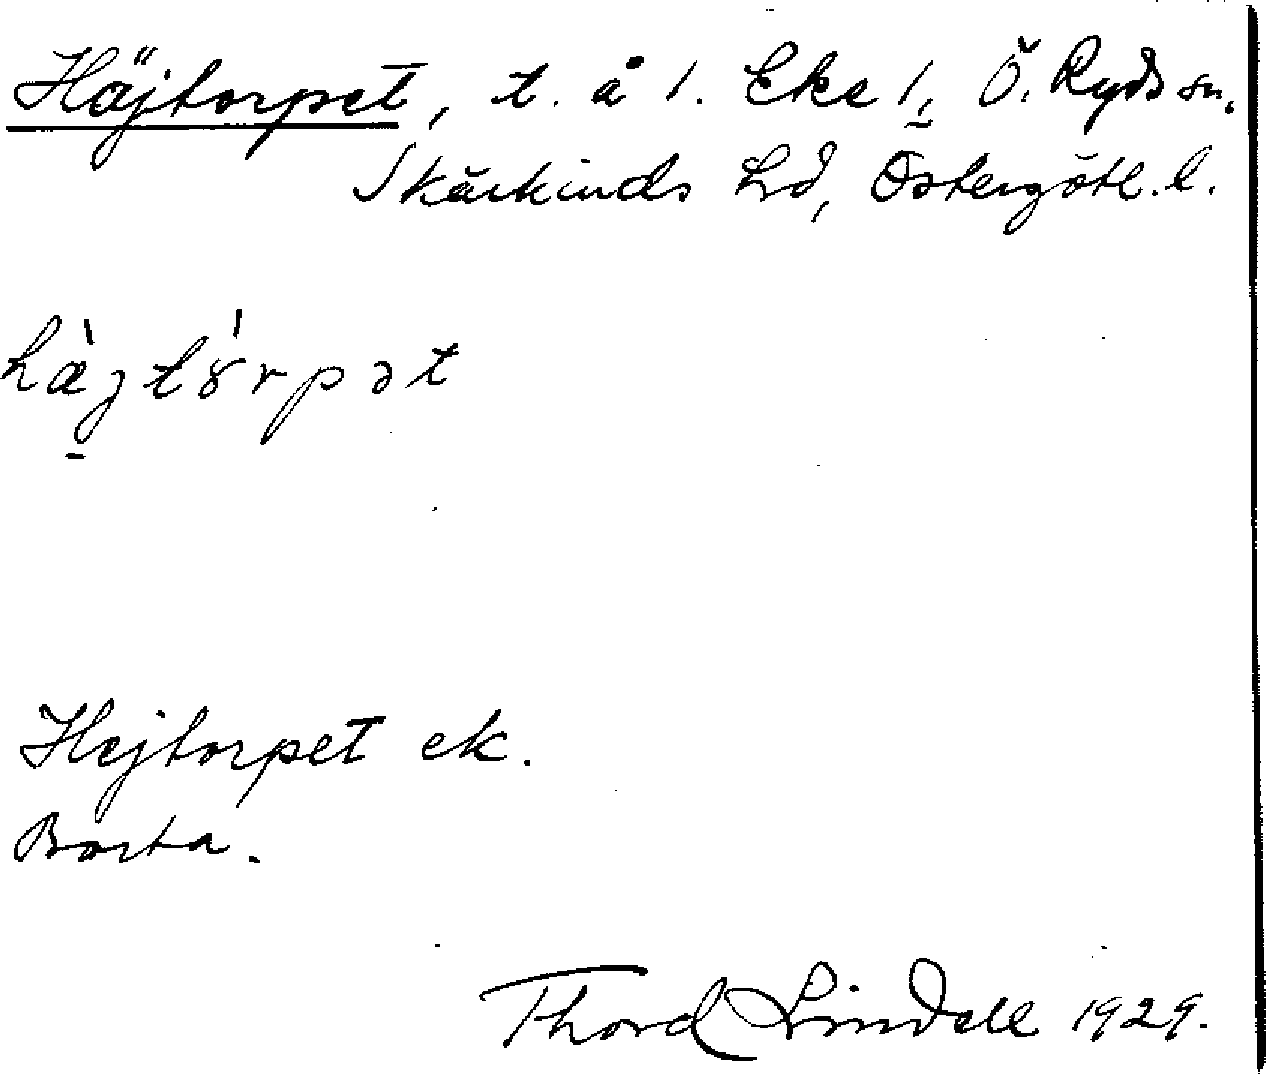 Häjtorpet, t. å l. Eke 1, Ö. Ryds sn.
Skärkinds hd, Östergötl. l.
hæ̀jtórpət
Hejtorpet ek.
Borta.
Thord Lindell 1929.